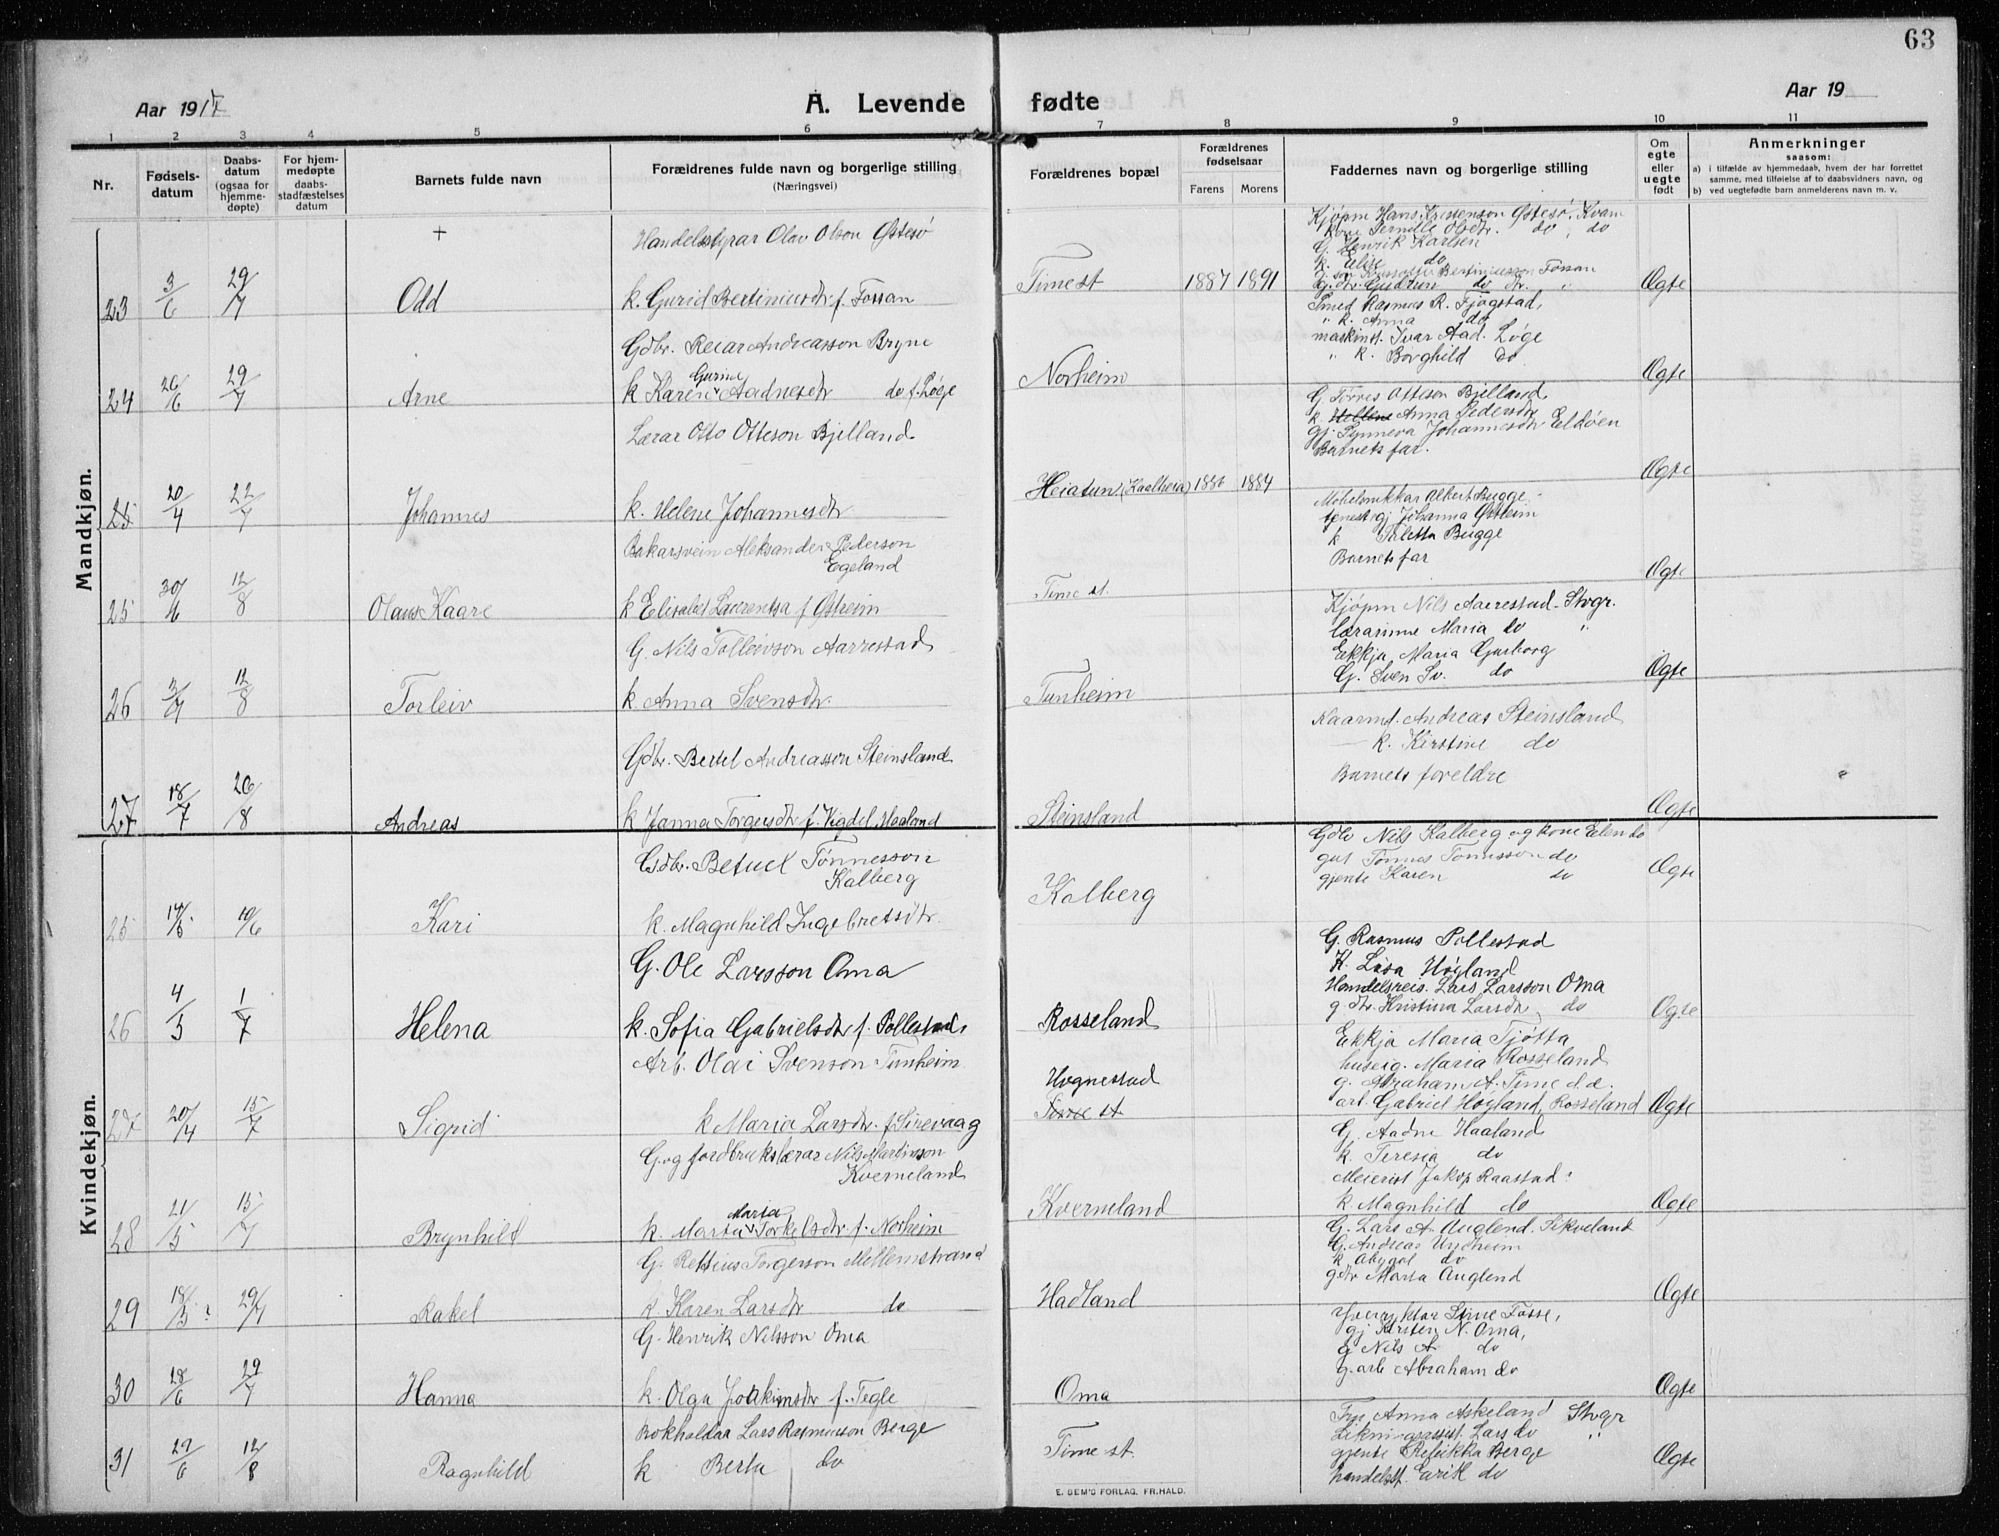 63
Aar 1917
A. Levende fødte
Aar 19
1 2 3 4 5 6 7 8 9 10 11
Nr.
Fødsels-
datum
Daabs-
datum
(ogsaa for
hjemme-
døpte)
For hjem-
medøpte
daabs-
stadfæstelses
datum
Barnets fulde navn
Forældrenes fulde navn og borgerlige stilling
(Næringsvei)
Forældrenes bopæl
Forældrenes
fødselsaar
Farens Morens
Faddernes navn og borgerlige stilling
Om
egte
eller
uegte
født
Anmerkninger
saasom:
a) i tilfælde av hjemmedaab, hvem der har forrettet
samme, med tilføielse af to daabsvidners navn, og
b) ved uegtefødte barn anmelderens navn m. v.
Mandkjøn.
+
Handelsstyrar Olav Olson Østesø
23 3/6 29/7 Odd k. Gurid Bertiniusdtr f. Fossan Time st 1887 1891 Ægte
Kjøpm Hans Kristenson Østesø, Kvam
kone Pernille Olsdtr. do, do
G. Henrik Karlsen
k. Elise do
g. dtr. Gudrun do
Rasmus R. Fjogstad,
" k. Anna do
maskinst. Ivar Aad. Løge
" k. Borghild do
Gdbr. Reiar Andreasson Bryne
24 26/6 29/7 Arne k Karen Gurine Aadnesdtr do f. Løge Norheim Ægte
G Torres Otteson Bjelland
k Anna Pedersdtr
gj. Synneva Johannesdtr Eldøen
Barnets far.
Lærar Otto Otteson Bjelland
25 20/4 22/7 Johannes k. Helene Johannesdtr Heiatun (Kaalheia) 1886 1884 Ægte
Møbelsnikkar Albert Bugge
tenestgj Johanna Østeim
k Taletta Bugge
Barnets far
Bakarsvein Aleksander Pederson
Egeland
25 30/6 12/8 Olaus Kaare k Elisabet Laurentsa f Østheim Time st. Ægte
Kjøpm Nils Aarrestad Stvgr.
lærarinne Maria do "
Ekkja Maria Garborg
G. Sven Sv. do
G. Nils Tolleivson Aarrestad
26 2/7 12/8 Torleiv k Anna Svensdtr. Tunheim Ægte
Kaarmd. Andreas Steinsland
k. Kirstine do
Barnets foreldre
Gdbr. Bertel Andreasson Steinsland
27 18/7 26/8 Andreas k Janna Torgersdtr f. Vigdel, Haaland Steinsland Ægte
Kvindekjøn.
Gdbr. Betuel Tønnesson
Kalberg
25 14/5 10/6 Kari k. Magnhild Ingebretsdtr. Kalberg Ægte
Gdbr Nils Kalberg og kone Elen do
gut Tønnes Tønnesson do
gjente Karen do
G. Ole Larsson Oma
26 4/5 1/7 Helena k. Sofia Gabrielsdtr f. Pollestad Rosseland Ægte
G. Rasmus Pollestad
K. Lisa Høgland
Handelsreis. Lars Larsson Oma
g. dtr. Kristina Larsdtr, do
Arb. Olai Svenson Tunheim
27 20/4 15/7 Sigrid k Maria Larsdtr f Sirevaag Hognestad
Time st Ægte
Ekkja Maria Tjøtta
huseig. Maria Rosseland
g. Abraham A. Time d.æ.
arb. Gabriel Høgland, Rosseland
G. og jordbrukslærar Nils Martinson
Kverneland
28 21/5 15/7 Brynhild k. Marta Maria Torkelsdtr f. Norheim Kverneland Ægte
G. Aadne Haaland
k. Teresia do
Meierist Jakop Raastad
k Magnhild do
G. Rettius Torgerson Mellemstrand
29 18/5 29/7 Rakel k. Karen Larsdtr do Hadland Ægte
G. Lars A Auglend. Sikveland
G. Andreas Undheim
k Abygal do
gdtr Marta Auglend
G. Henrik Nilsson Oma
30 28/6 29/7 Hanna k. Olga Joakimsdtr f. Tegle Oma Ægte
Stine Fosse,
gj Kirsten N. Oma,
g Nils A do
g. arb Abraham do
Bokhaldar Lars Rasmusson Berge
31 29/6 12/8 Ragnhild k Berta do Time st. Ægte
Frk Anna Askeland Stvgr
Likningsassist. Lars do "
gjente Rebekka Berge
handelsst. Eirik do
E. SEM'S FORLAG. FR.HALD.